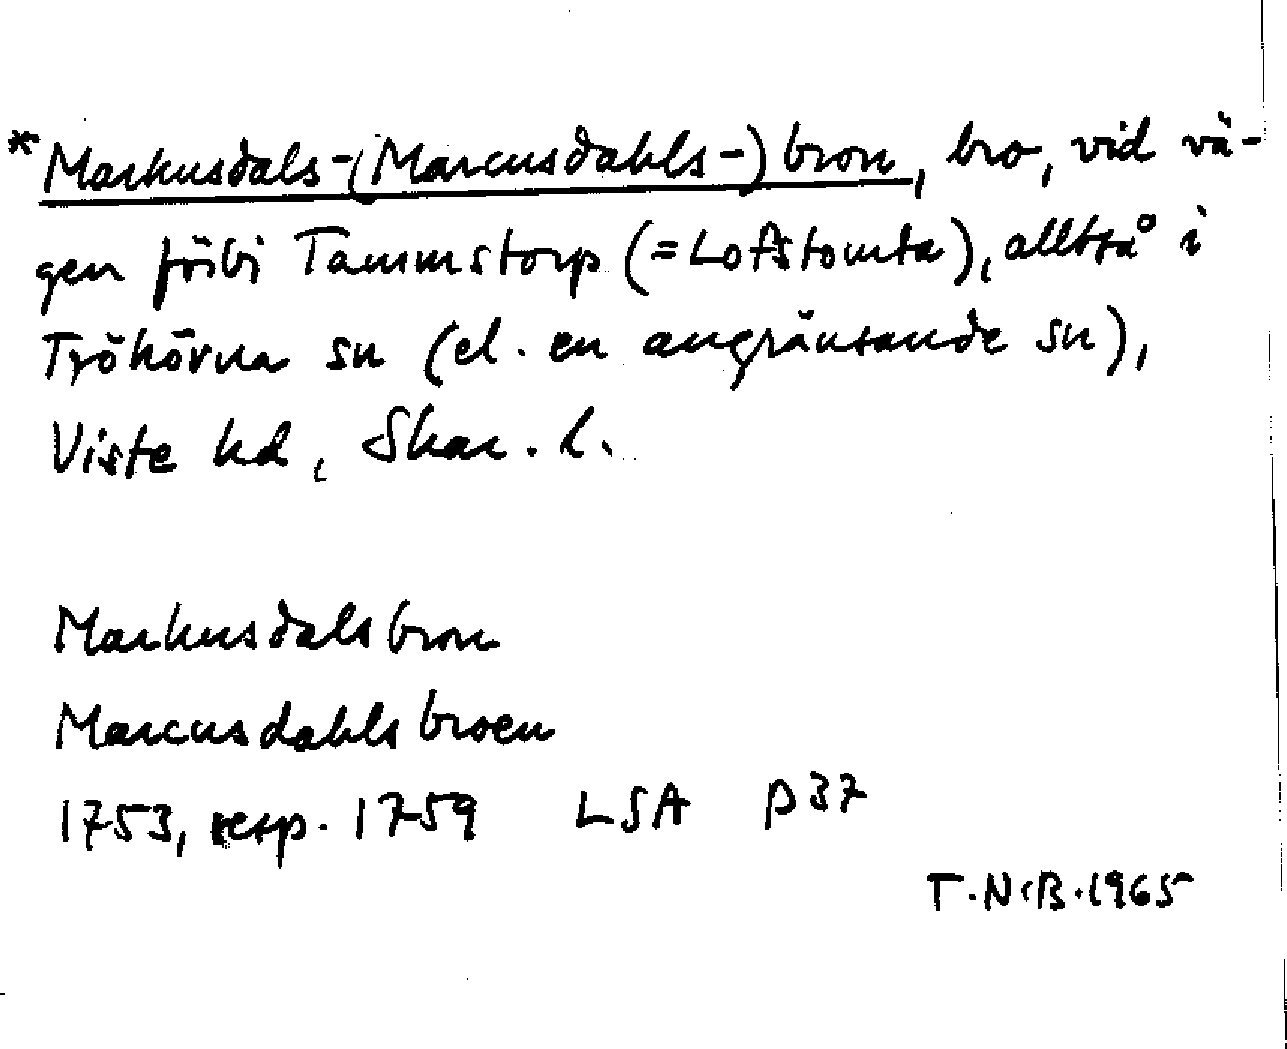 *Markusdals-(Marcusdahls-)bron, bro, vid vä-
gen förbi Tammstorp (=Loftstomta), alltså i
Tröhörna sn (el. en angränsande sn),
Viste hd, Skar. l.
Markusdalsbron
Marcusdahlsbroen
1753, resp. 1759 LSA P37
T.N.B.1965